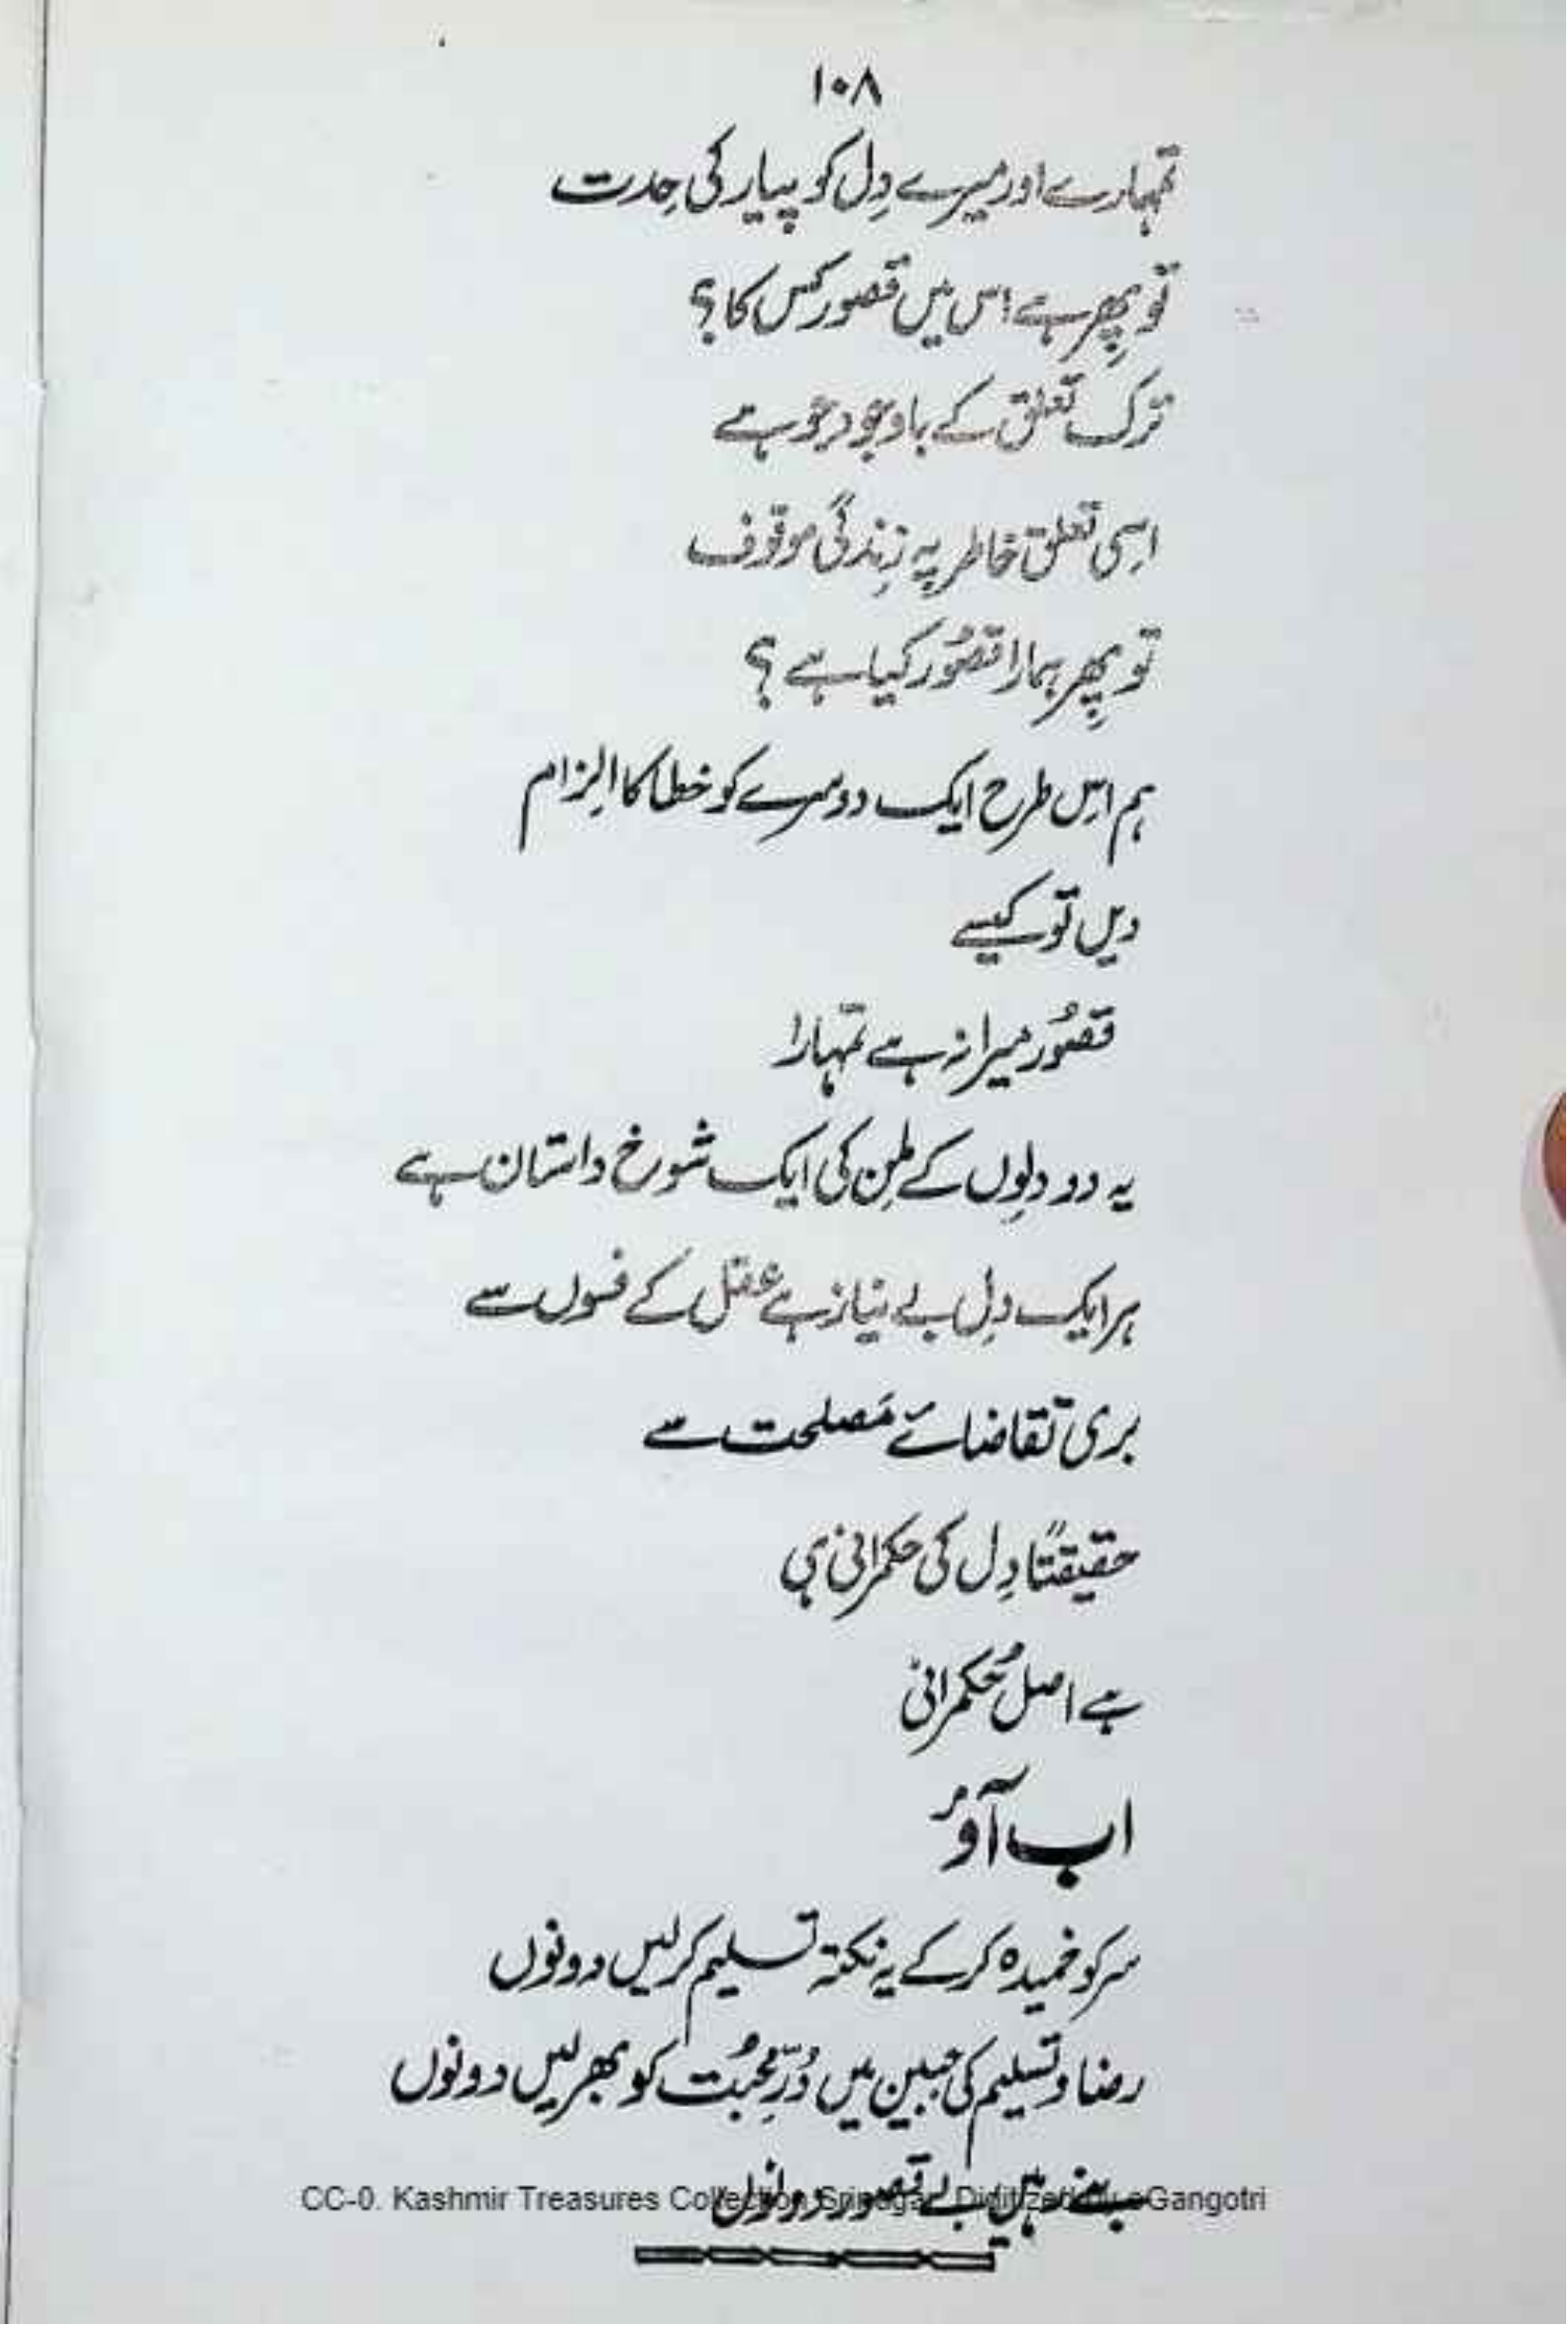 ۱۰۸
تمہارے اور میرے دِل کو پیار کی حِدت
تو پھِر ہے اس میں قصور کس کا ؟
ترکِ تعلق کے باوجود جو ہے
اسِی تعلق خاطر پہ زِندگی موقوف
تو پھِر ہمارا قصُور کیا ہے ؟
ہم اسِ طرح ایک دوسرے کو خطا کا الِزام
دیں تو کیسے
قصُور میرا نہ ہے تمہارا
یہ دو دلِوں کے مِلن کی ایک شوخ داستان ہے
ہر ایک دِل بے نیاز ہے عقل کے فسوں سے
بری تقاضائے مَصلحت سے
حقیقتاً دِل کی حکمرانی ہی
ہے اصل حُکمرانی
اب آؤ
سر کو خمیدہ کر کے یہ نکتہ تسلیم کر لیں دونوں
رضا و تسلیم کی جبین میں دُرِّ محُبت کو بھر لیں دونوں
بنے رہیں بے قصور دونوں
CC-0. Kashmir Treasures Collection Srinagar. Digitized by eGangotri